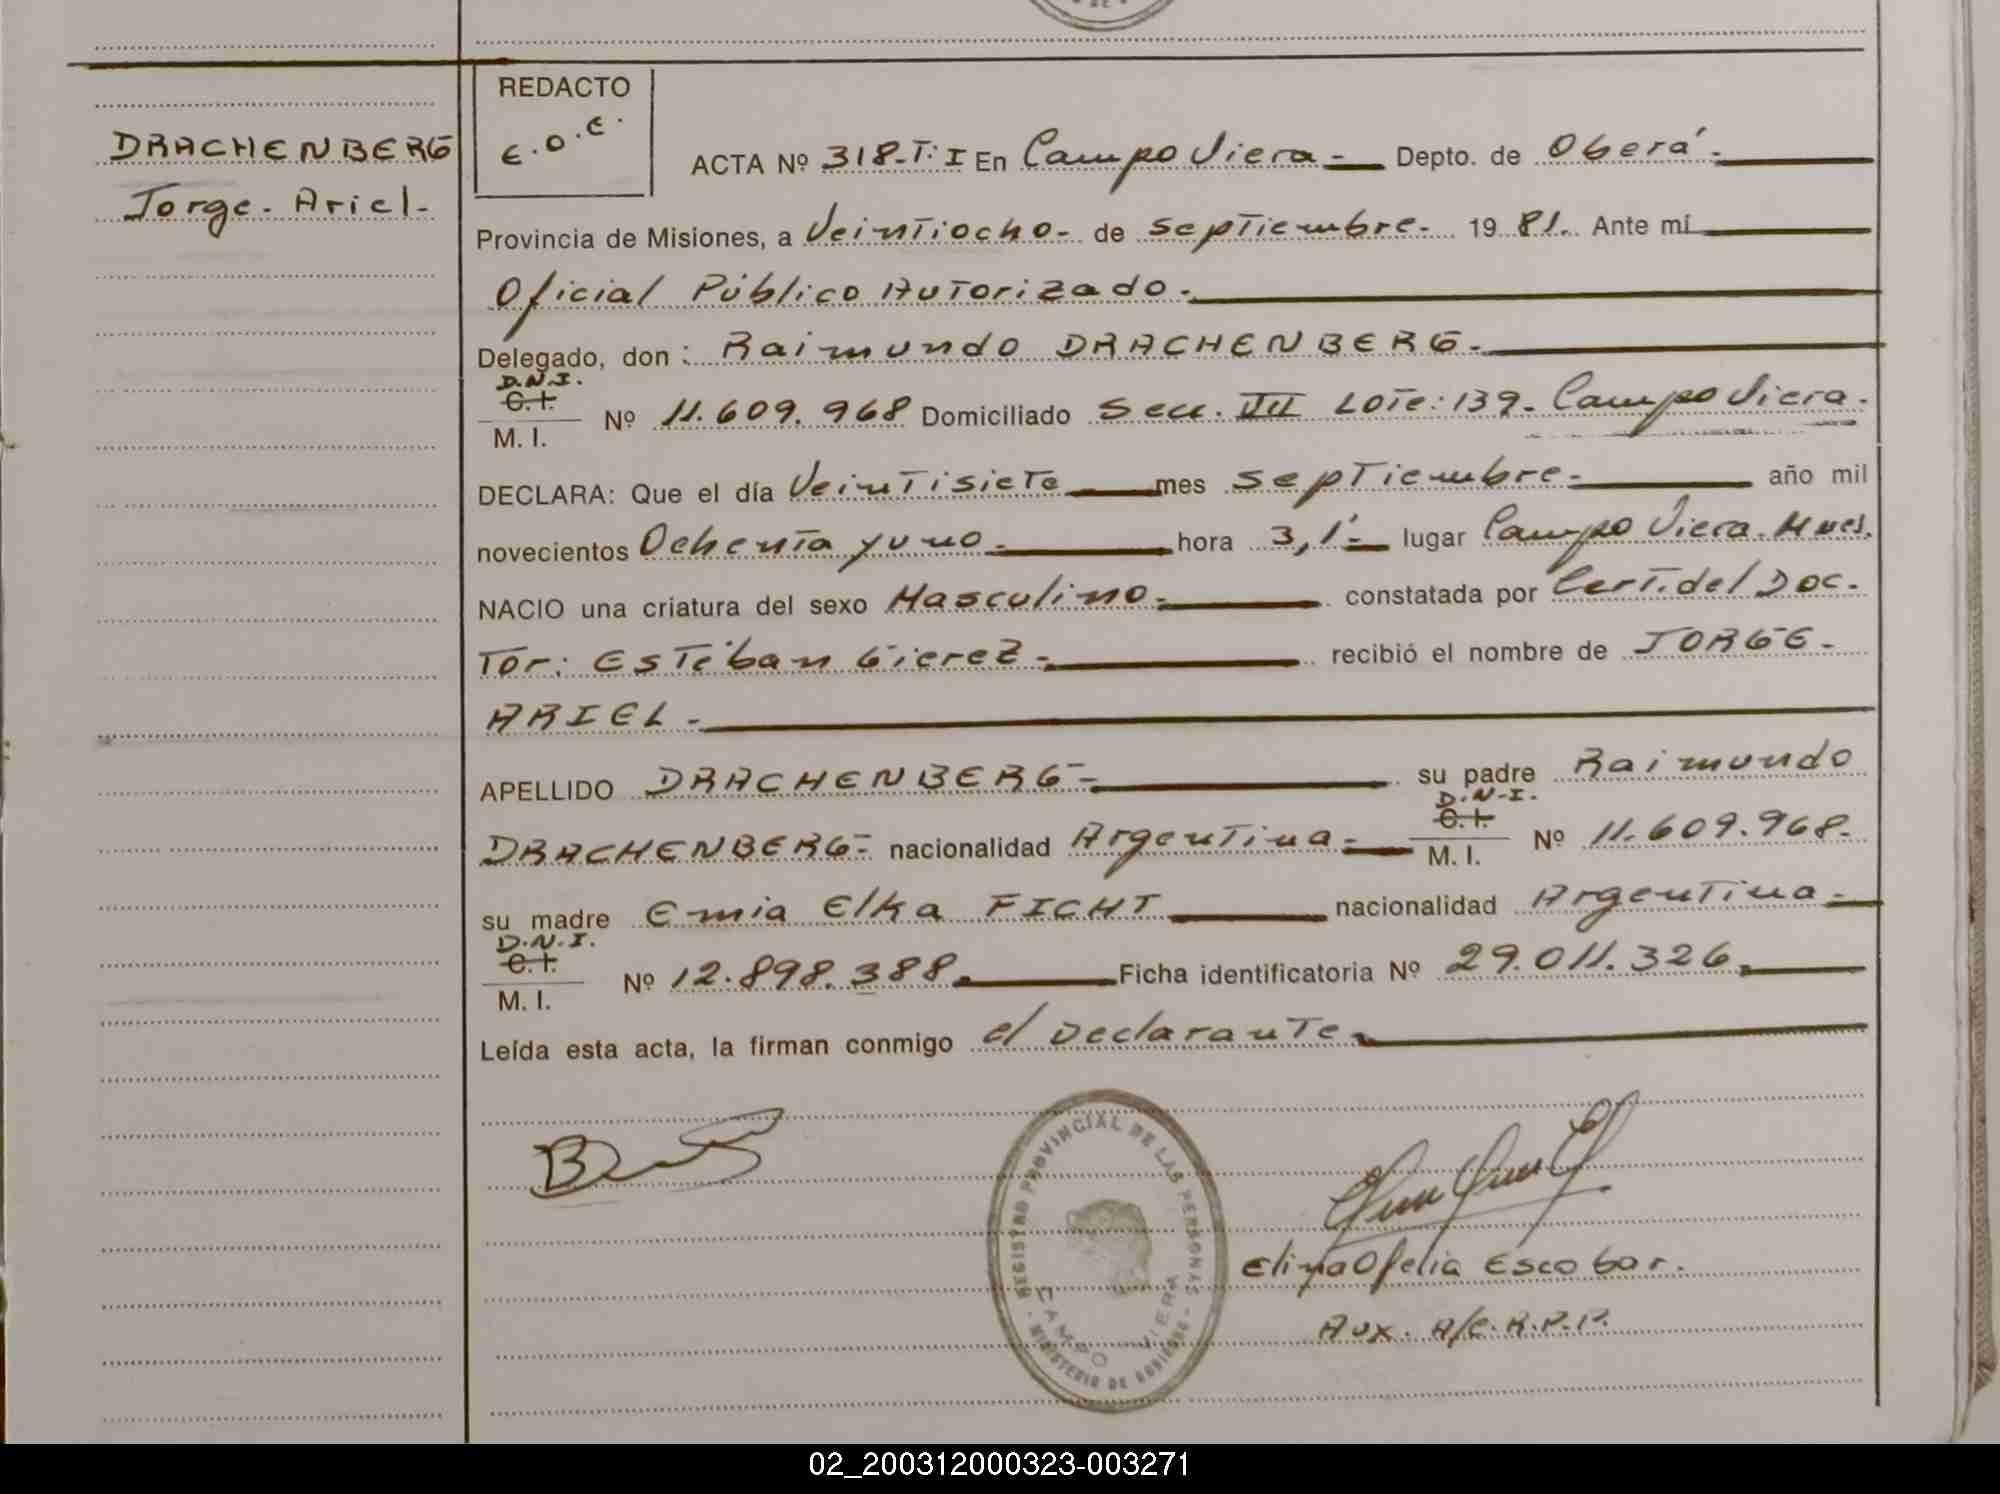 DRACHENBERG
Jorge. Ariel.
REDACTO
E.O.E.
ACTA Nº 318-T: I En Campo Viera.- Depto. de Oberá.-
Provincia de Misiones, a Veintiocho- de Septiembre.- 19 81. Ante mí
Oficial Público Autorizado.-
Delegado, don: Raimundo DRACHENBERG.-
D.N.I.
C.I.
M. I. Nº 11.609.968 Domiciliado Secc. VII Lote: 139. Campo Viera.
DECLARA: Que el día Veintisiete mes septiembre.- año mil
novecientos Ochenta y uno.- hora 3,1'- lugar Campo Viera. Mnes.
NACIO una criatura del sexo Masculino.- constatada por Cert. del Doc.
Tor: Esteban Gierez.- recibió el nombre de JORGE.-
ARIEL.-
APELLIDO DRACHENBERG- su padre Raimundo
D.N.I.
C.I.
DRACHENBERG- nacionalidad Argentina.- M. I. Nº 11.609.968.
su madre Emia Elka FICHT nacionalidad Argentina.-
D.N.I.
C.I.
M. I. Nº 12.898.388. Ficha identificatoria Nº 29.011.326.
Leída esta acta, la firman conmigo el Declarante.
REGISTRO PROVINCIAL DE LAS PERSONAS
CAMPO VIERA
- MINISTERIO DE GOBIERNO -
Elina Ofelia Escobar.
Aux. A/C. R.P.P.
02_200312000323-003271